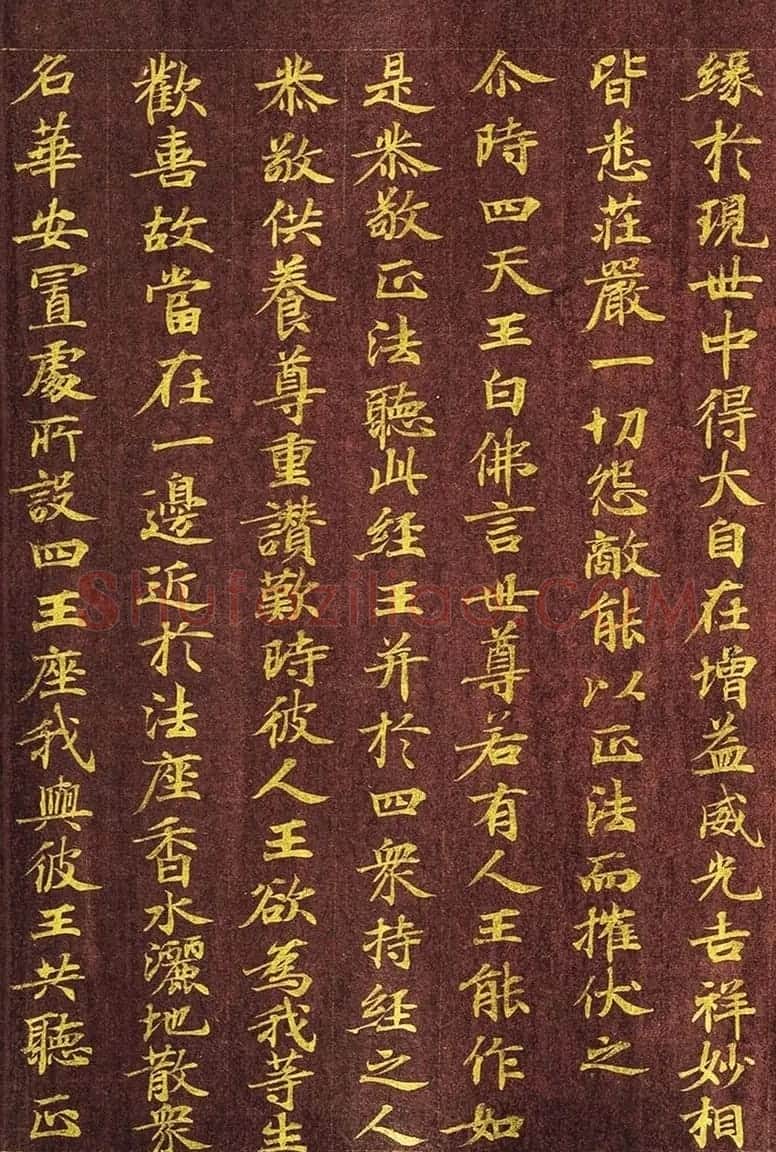 緣於現世中得大自在增益威光吉祥妙相
皆悉莊嚴一切怨敵能以正法而摧伏之
尒時四天王白佛言世尊若有人王能作如
是恭敬正法聽此經王并於四衆持經之人
恭敬供養尊重讃歎時彼人王欲為我等生
歡喜故當在一邊近於法座香水灑地散衆
名華安置處所設四王座我與彼王共聽正
Shufazidao.com